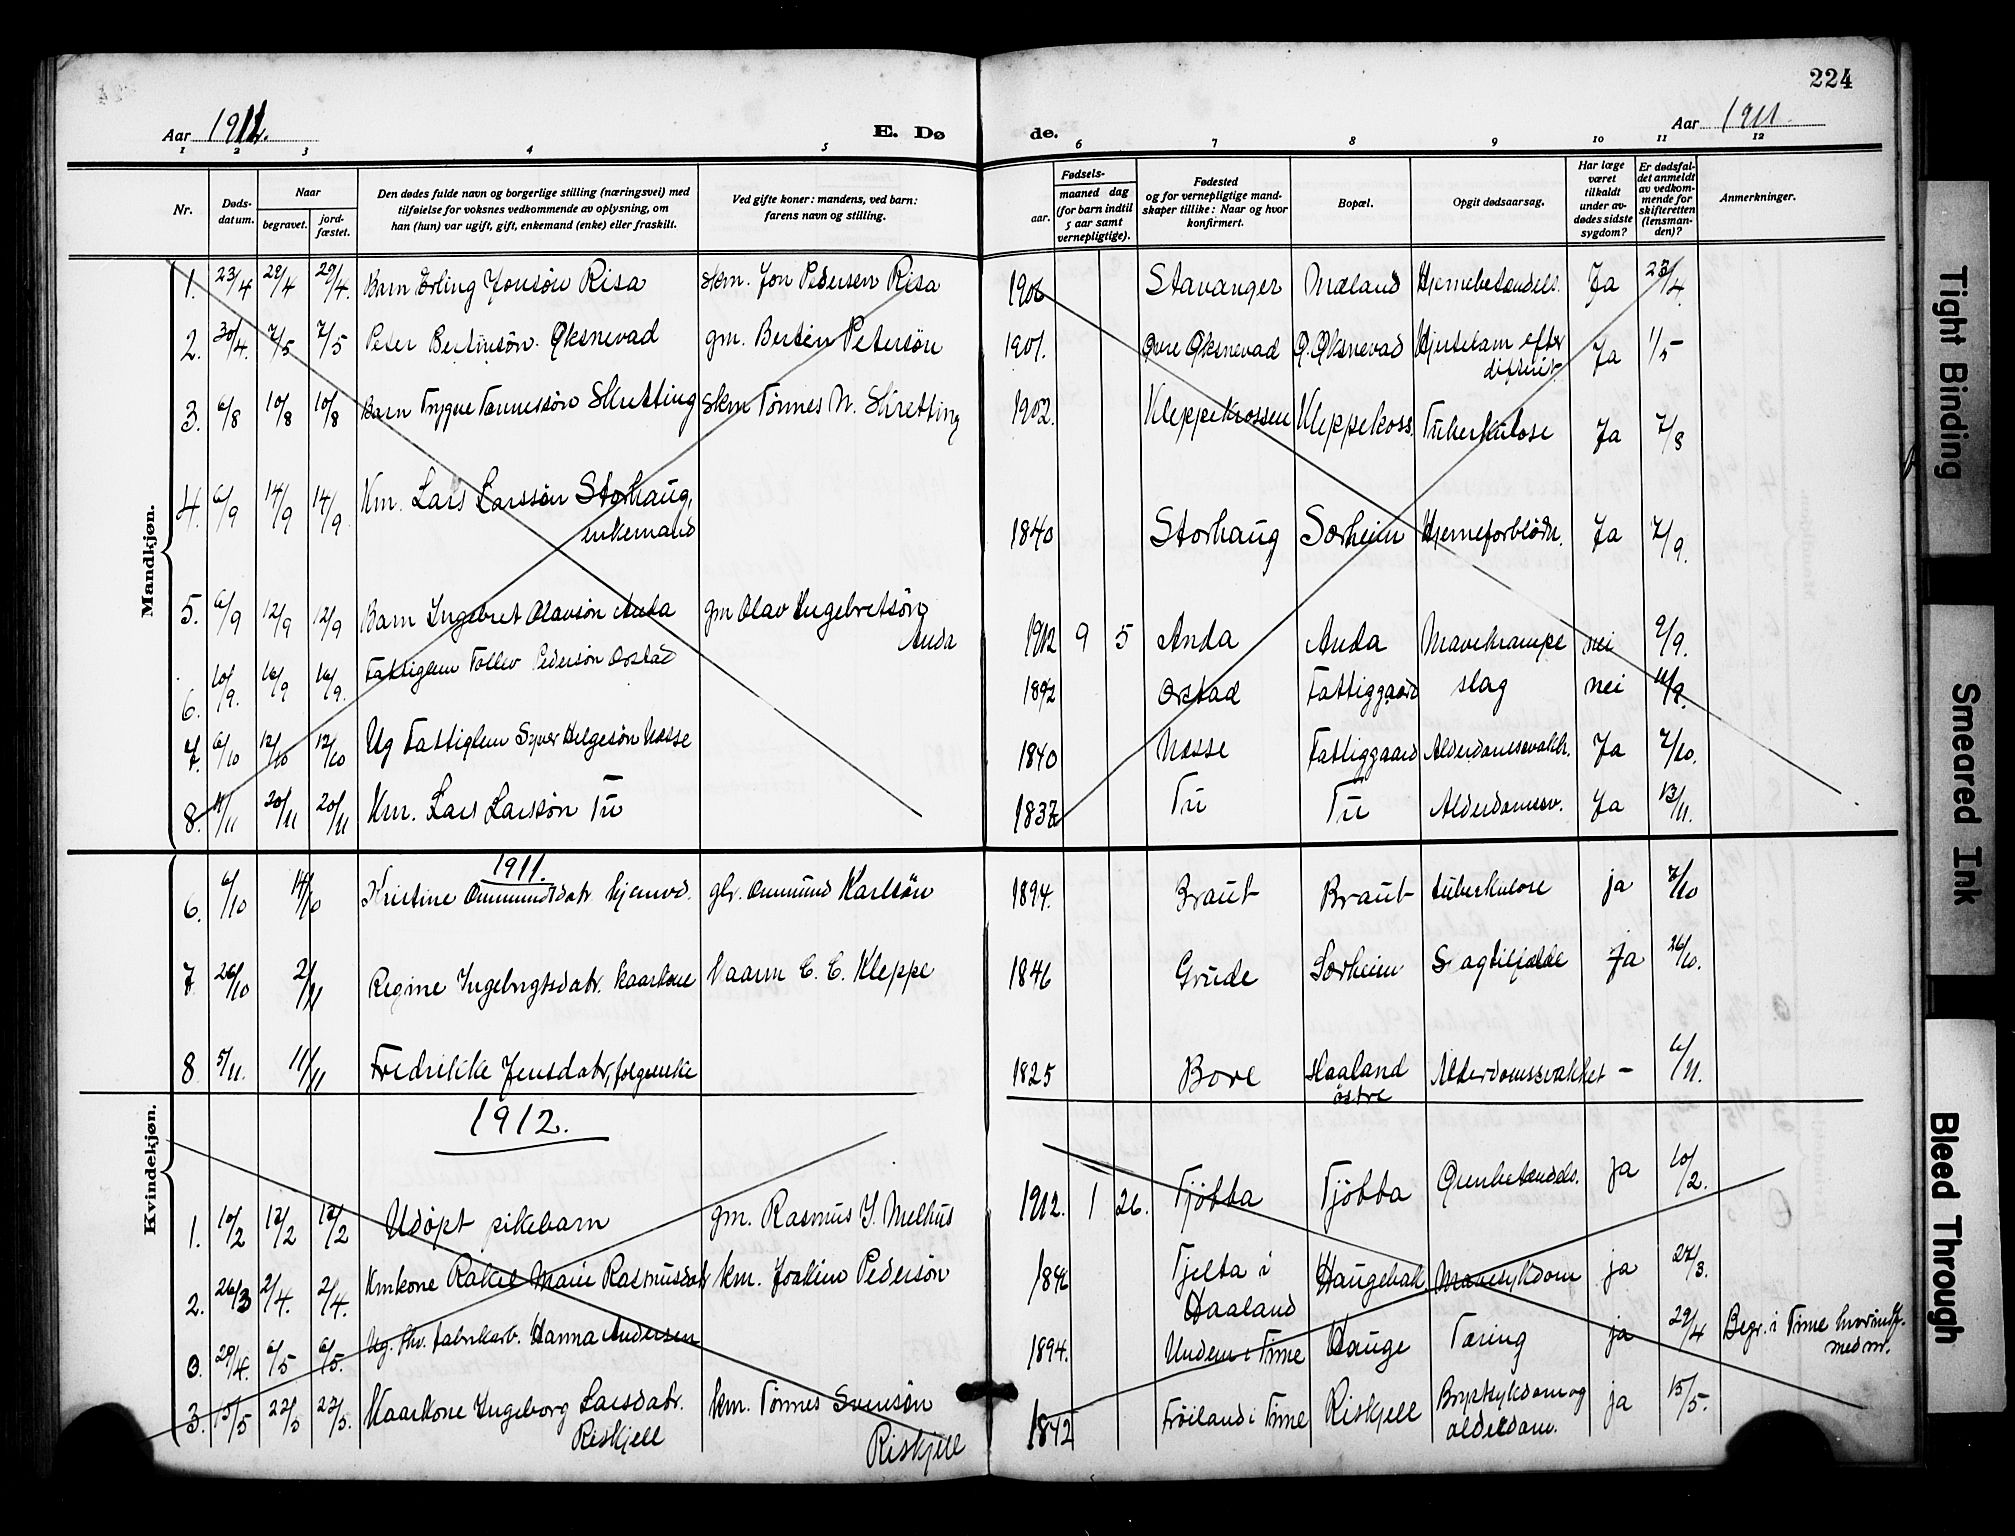 224
Aar 1911. E. Døde. Aar 1911
1 2 3 4 5 6 7 8 9 10 11 12
Nr.
Døds-
datum.
Naar
begravet.
jord-
fæstet.
Den dødes fulde navn og borgerlige stilling (næringsvei) med
tilføielse for voksnes vedkommende av oplysning, om
han (hun) var ugift, gift, enkemand (enke) eller fraskilt.
Ved gifte koner: mandens, ved barn:
farens navn og stilling.
Fødsels-
aar. maaned dag
(for barn indtil
5 aar samt
vernepligtige).
Fødested
og for vernepligtige mand-
skaper tillike: Naar og hvor
konfirmert.
Bopæl.
Opgit dødsaarsag.
Har læge
været
tilkaldt
under av-
dødes sidste
sygdom?
Er dødsfal-
det anmeldt
av vedkom-
mende for
skifteretten
(lensman-
den)?
Anmerkninger.
Mandkjøn.
1. 23/4 29/4 29/4. Barn Erling Jonsøn Risa Skm. Jon Pedersen Risa 1906 Stavanger Mæland Hjernebetændels. Ja 23/4.
2. 30/4. 7/5 7/5 Peter Bertinsøn Øksnevad gm. Bertin Petersøn 1901. Øvre Øksnevad Ø. Øksnevad Hjertelam efter
difterit. Ja 1/5
3. 6/8 10/8 10/8 Barn Trygve Tønnessøn Skretting Skm Tønnes N. Skretting 1902. Kleppekrossen Kleppekross Tuberkulose Ja 7/8
4. 6/9 14/9 14/9. Km. Lars Larssøn Storhaug,
enkemand 1840 Storhaug Sørheim Hjerneforblødn. Ja 7/9.
5. 6/9 12/9 12/9 Barn Ingebret Olavsøn Anda gm Olav Ingebretsøn
Anda 1912 9 5 Anda Anda Mavekrampe nei 9/9.
6. 10/9. 16/9 16/9. Fattiglem Tollev Pedersøn Orstad 1892 Orstad Fattiggaard slag nei 11/9.
7. 6/10 12/10 12/10 Ug Fattiglem Syver Helgesøn Næsse 1840 Næsse Fattiggaard Alderdomssvakh. Ja 7/10.
8. 11/11 20/11 20/11 Km. Lars Larssøn Tu 1837 Tu Tu Alderdomssv. Ja 13/11.
1911.
6. 6/10 14/10 Kristine Ommundsdatr. hjemv. gbr. Ommund Karlsøn 1894. Braut Braut tuberkulose ja 7/10
7 26/10 2/11 Regine Ingebrigtsdatr. kaarkone Kaarm C. C. Kleppe 1846 Grude Sørheim Slagtilfælde Ja 26/10.
8 5/11. 11/11 Fredrikke Jensdatr, følgeenke 1825 Bore Haaland
østre Alderdomssvakhet - 6/11.
Kvindekjøn.
1912.
1. 10/2 12/2 12/2 Udøpt pikebarn gm. Rasmus J. Melhus 1912. 1 26. Tjøtta Tjøtta Ørenbetændels. ja 10/2.
2. 26/3 2/4. 2/4. Kmkone Rakel Marie Rasmusdatr km. Joakim Pedersøn 1846 Tjelta i
Haaland Haugebak. Mavesykdom ja 27/3.
0. 29/4. 6/5 6/5. Ug. fhv. fabrikarb. Hanna Andersen 1894. Undem i Time Hauge Tæring ja 29/4 Begr. i Time hvor indf.
med nr.
3. 15/5 22/5 22/5. Kaarkone Ingeborg Larsdatr.
Riskjell km. Tønnes Svensøn
Riskjell 1842 Frøiland i Time Riskjell Brystsykdom og
alderdom. ja 15/5.
Tight Binding
Smeared Ink
Bleed Through